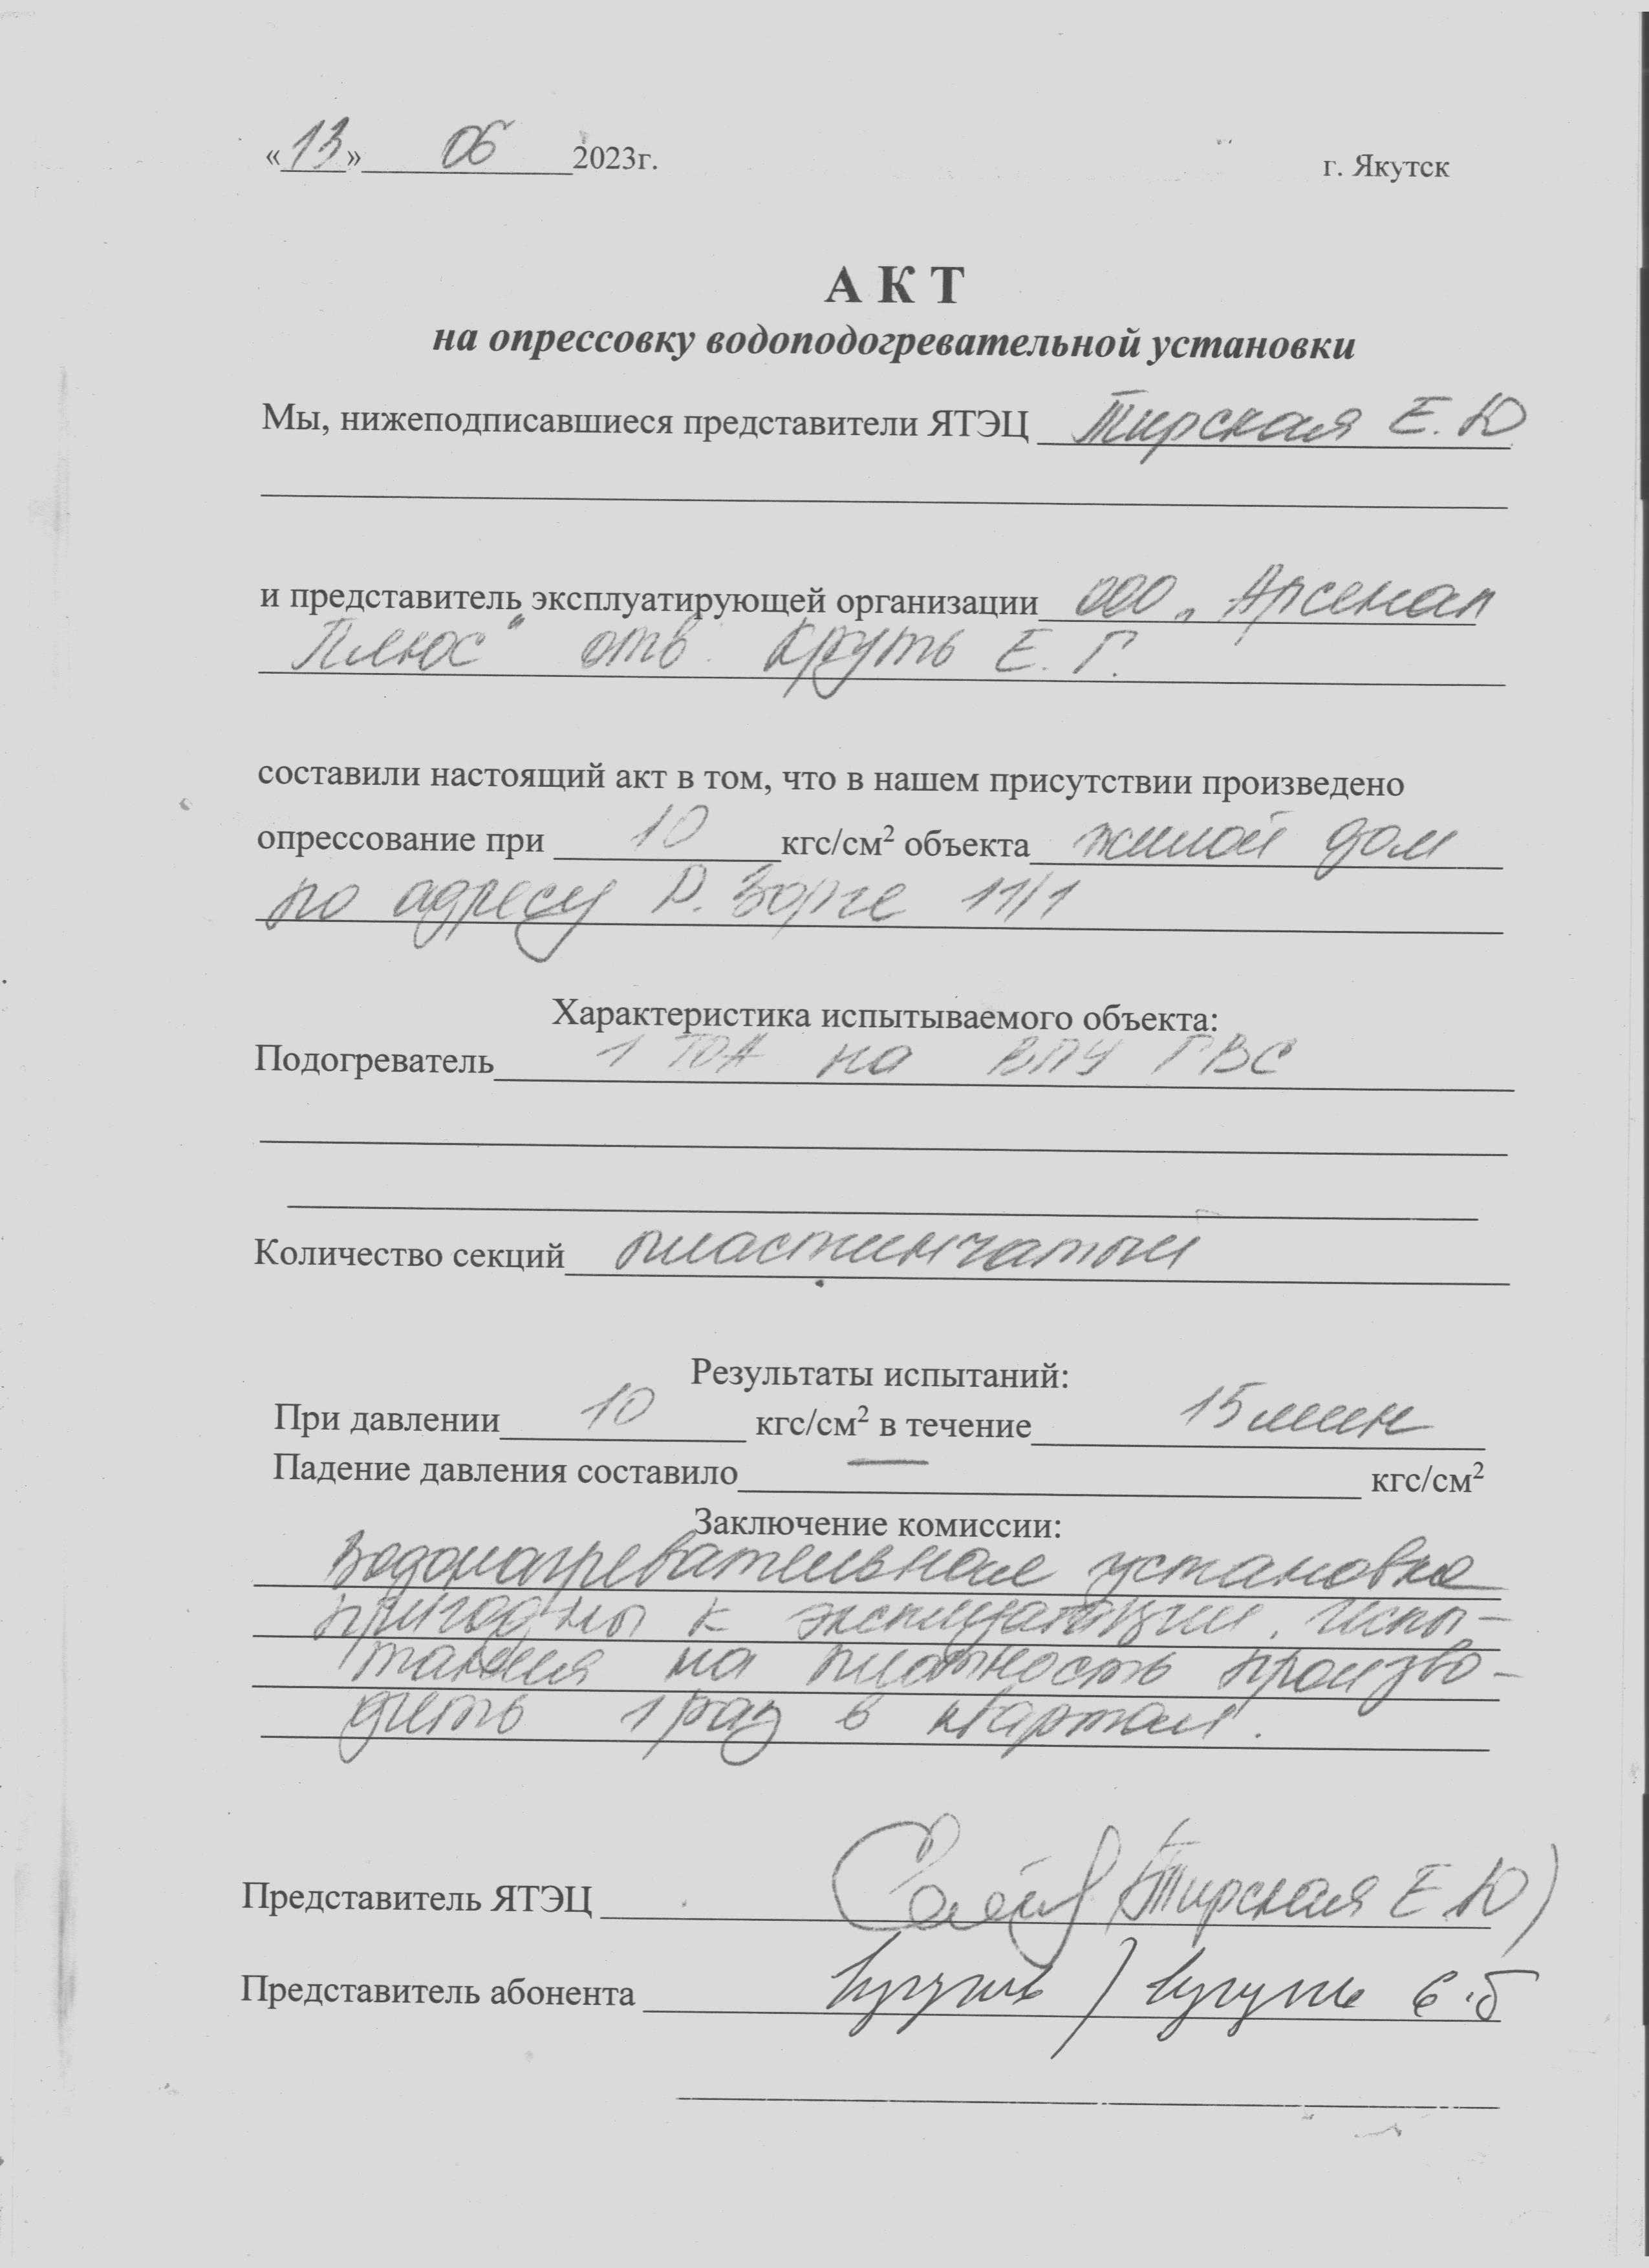 «13» 06 2023г. г. Якутск
А К Т
на опрессовку водоподогревательной установки
Мы, нижеподписавшиеся представители ЯТЭЦ Тирская Е. Ю
и представитель эксплуатирующей организации ООО „Арсенал
Плюс" отв. Круть Е. Г.
составили настоящий акт в том, что в нашем присутствии произведено
опрессование при 10 кгс/см² объекта жилой дом
по адресу Р. Зорге 11/1
Характеристика испытываемого объекта:
Подогреватель 1 ТОА на ВПУ ГВС
Количество секций пластинчатый
Результаты испытаний:
При давлении 10 кгс/см² в течение 15 мин
Падение давления составило — кгс/см²
Заключение комиссии:
Водонагревательные установка
пригодны к эксплуатации. Испы-
тания на плотность произво-
дить 1 раз в квартал.
Представитель ЯТЭЦ (Тирская Е Ю)
Представитель абонента